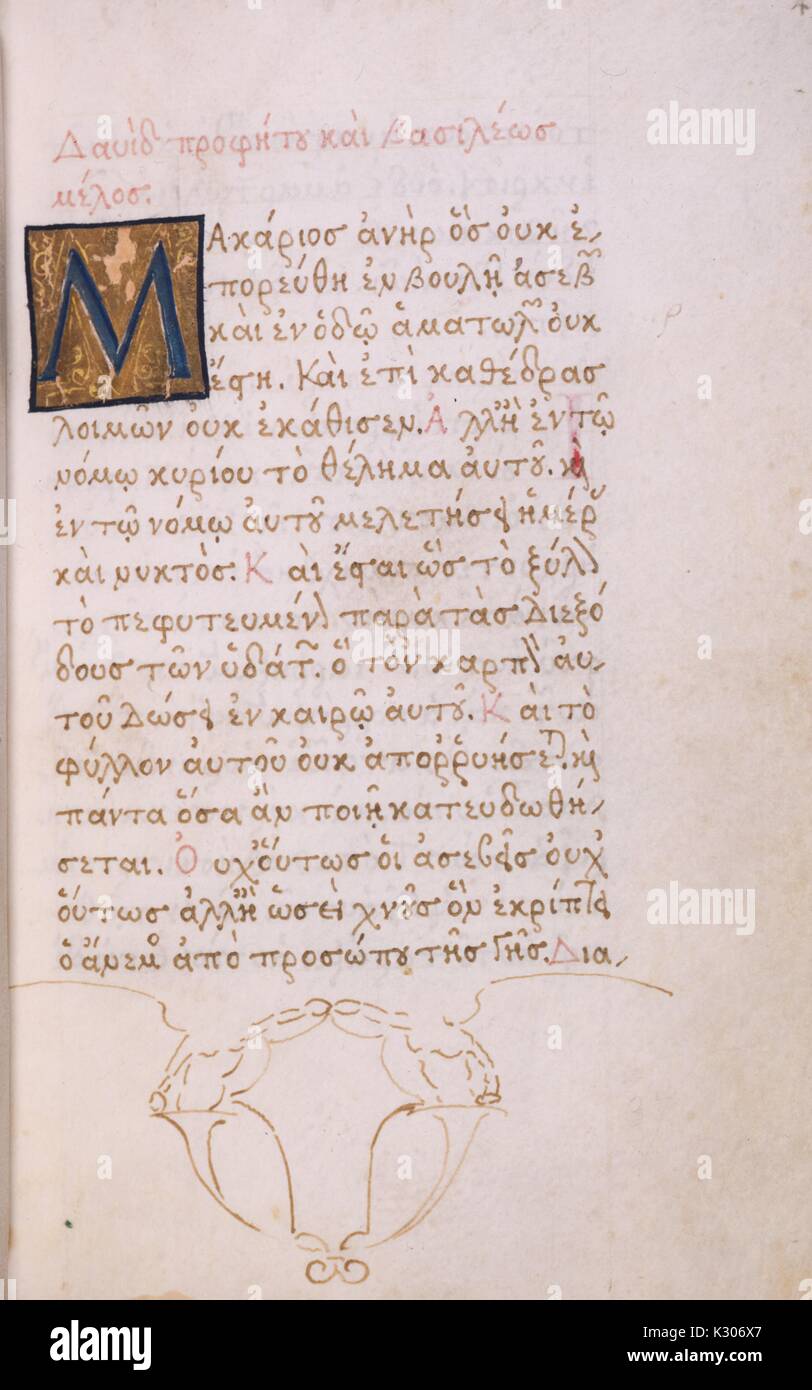 Δαυὶδ προφήτου καὶ βασιλέως
μέλος.
Μακάριος ἀνὴρ ὃς ὀυκ ἐ-
πορεύθη ἐν βουλῇ ἀσεβ
καὶ ἐν ὁδῷ ἁματωλ ὀυκ
ἔστη. Καὶ ἐπὶ καθέδρας
λοιμῶν ὀυκ ἐκάθισεν. Ἀλλ' ἢ ἐν τῷ
νόμῳ κυρίου τὸ θέλημα ἀυτοῦ. κὶ
ἐν τῷ νόμῳ ἀυτοῦ μελετήσει ἡμέρ
καὶ νυκτὸς. Καὶ ἔσται ὡς τὸ ξύλ
τὸ πεφυτευμέν παρὰ τὰς διεξό
δους τῶν ὑδάτ. ὃ τὸν καρπὸν ἀυ-
τοῦ δώσει ἐν καιρῷ ἀυτοῦ. Κὰι τὸ
φύλλον ἀυτοῦ ὀυκ ἀποῤῥυήσεται. κὶ
πάντα ὅσα ἂν ποιῇ κατευδωθή-
σεται. Ὀυχ ὅυτως ὁι ἀσεβεῖς ὀυχ
ὅυτως ἀλλ' ἢ ὡσεὶ χνοῦς ὃν ἐκρίπτει
ὁ ἄνεμο ἀπὸ προσώπου τῆς γῆς. Δια-
alamy
a
a
alamy
a
a
alamy
a
alamy
Image ID: K306X7
www.alamy.com